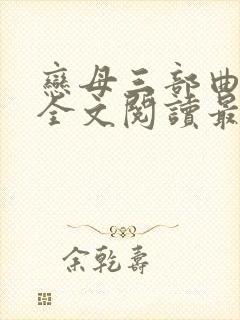 戀母三部曲
全文閱讀最
余乾壽